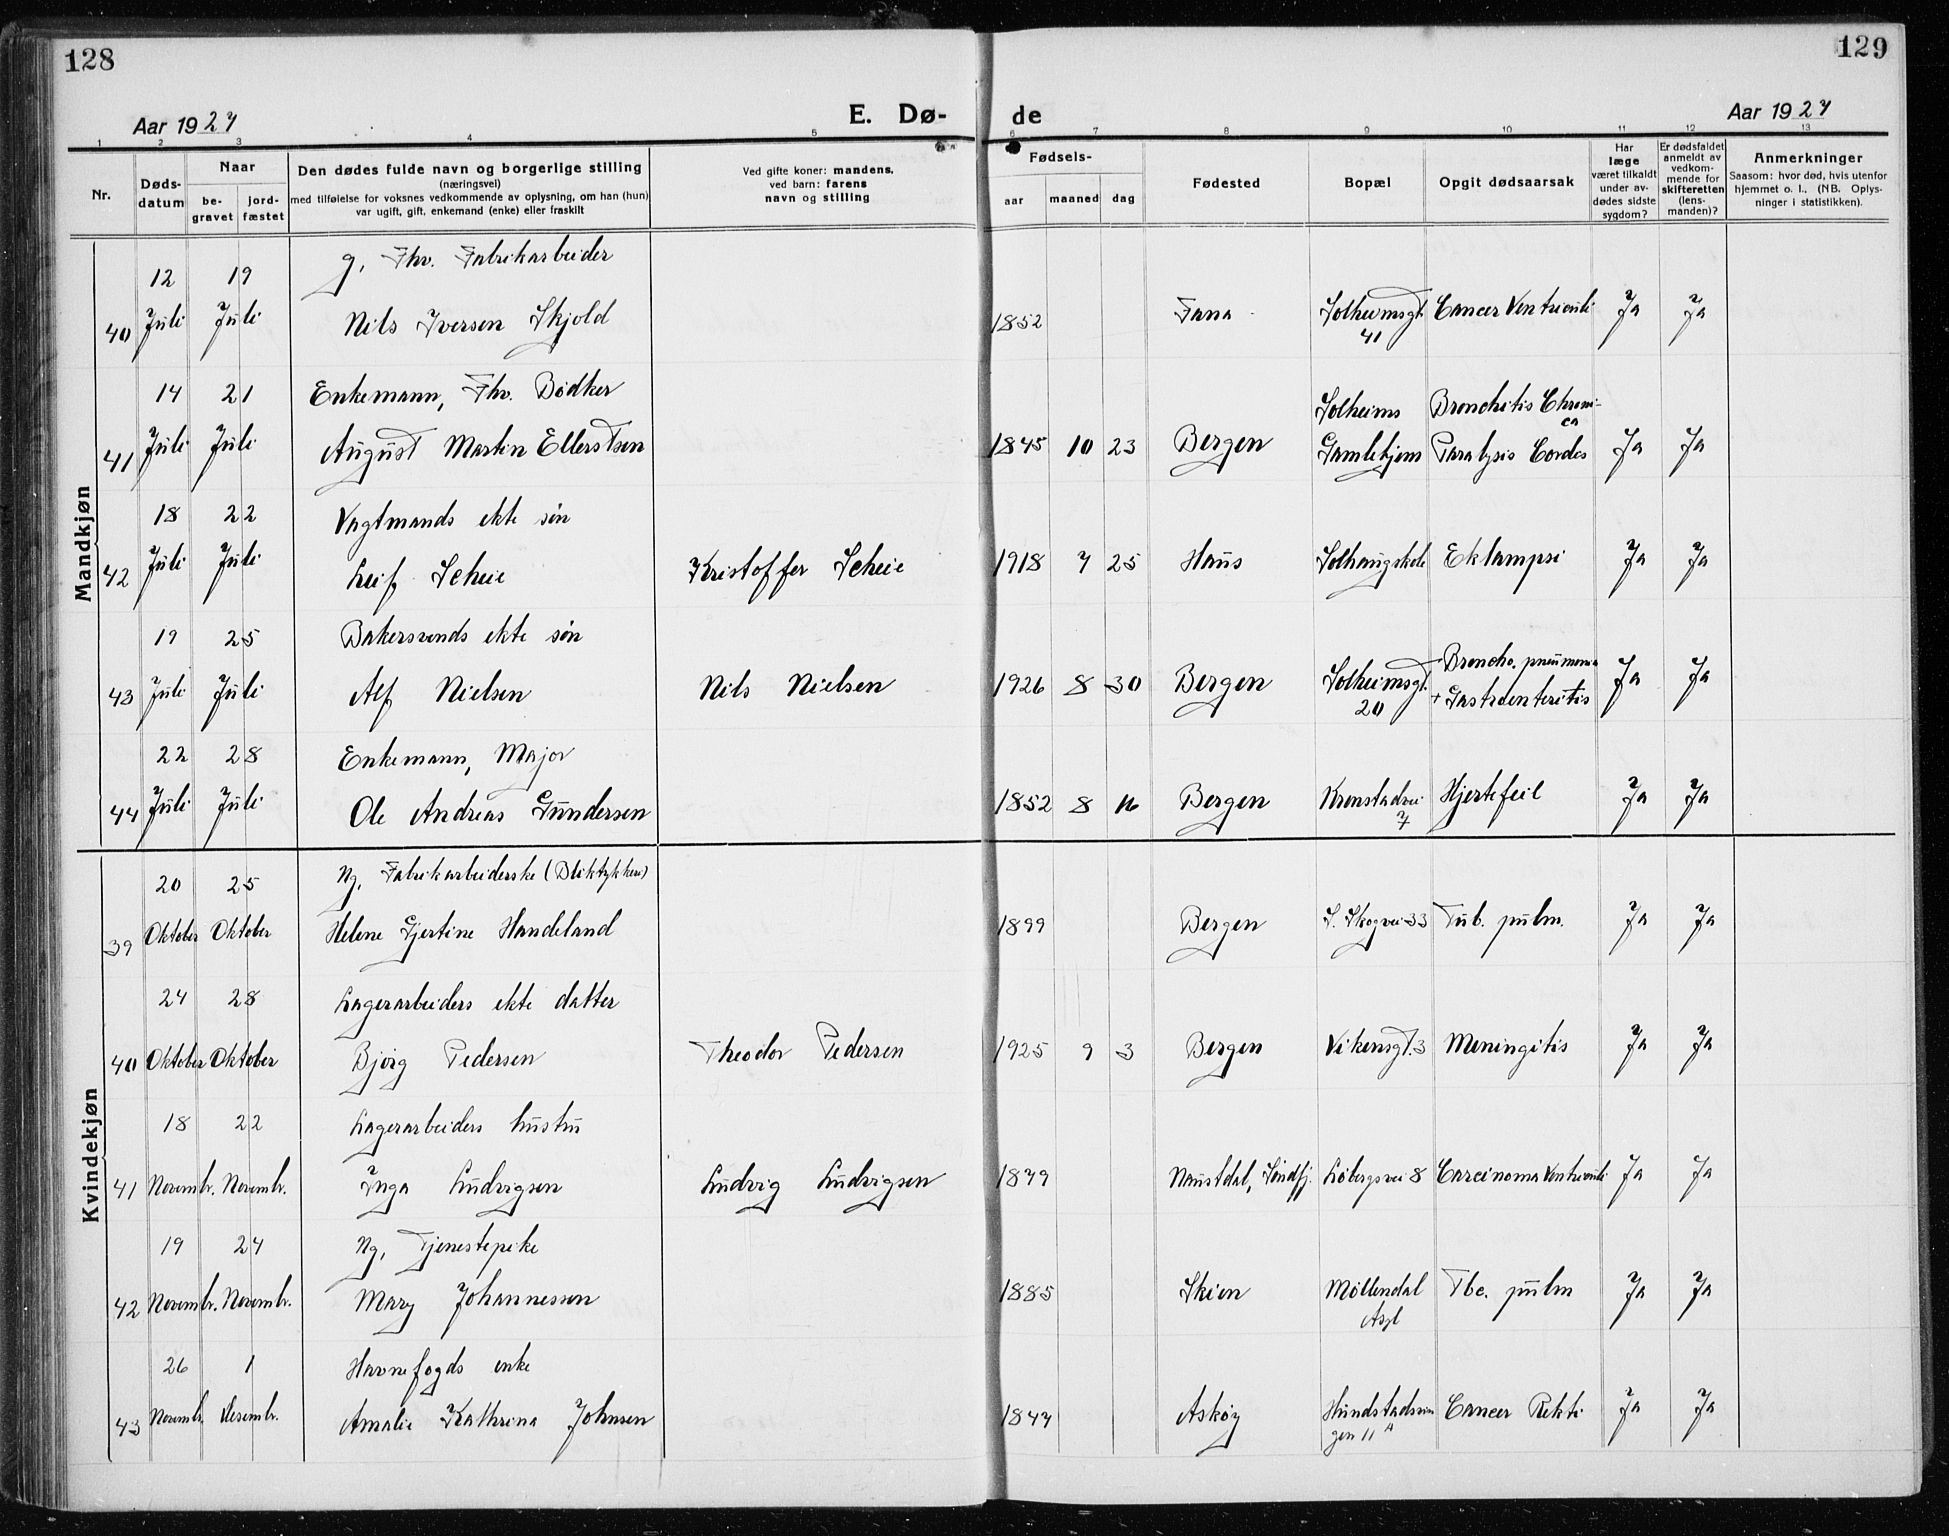 128
129
Aar 1927
E. Dø-
de
Aar 1927
1 2 3 4 5 6 7 8 9 10 11 12 13
Nr.
Døds-
datum
Naar
be-
gravet
jord-
fæstet
Den dødes fulde navn og borgerlige stilling
(næringsvei)
med tilføielse for voksnes vedkommende av oplysning, om han (hun)
var ugift, gift, enkemand (enke) eller fraskilt
Ved gifte koner: mandens,
ved barn: farens
navn og stilling
Fødsels-
aar maaned dag
Fødested
Bopæl
Opgit dødsaarsak
Har
læge
været tilkaldt
under av-
dødes sidste
sygdom?
Er dødsfaldet
anmeldt av
vedkom-
mende for
skifteretten
(lens-
manden)?
Anmerkninger
Saasom: hvor død, hvis utenfor
hjemmet o. l., (NB. Oplys-
ninger i statistikken).
Mandkjøn
12 19 g, Fhv. Fabrikarbeider
40 Juli Juli Nils Iversen Skjold 1852 Fana Solheimsgt. Cancer Ventriculi Ja Ja
41
14 21 Enkemann, Fhv. Bødker Solheims Bronchitis Chroni-
ca
41 Juli Juli August Martin Ellerstsen 1845 10 23 Bergen Gamlehjem Paralysis Cordis Ja Ja
18 22 Vagtmands ekte søn
42 Juli Juli Leif Scheie Kristoffer Scheie 1918 7 25 Haus Eklampsi Ja Ja
19 25 Bakersvends ekte søn Broncho. pneumoni
43 Juli Juli Alf Nielsen Nils Nielsen 1926 8 30 Bergen Solheimsgt. + Gastroenteritis Ja Ja
20
22 28 Enkemann, Major
44 Juli Juli Ole Andreas Gundersen 1852 8 16 Bergen Kronstadvei Hjertefeil Ja Ja
7
Kvindekjøn
20 25 Ug, Fabrikarbeiderske (Bliktrykkeri)
39 Oktober Oktober Helene Gjertine Handeland 1899 Bergen S. Skogvei 33 Tub. pulm. Ja Ja
24 28 Lagerarbeiders ekte datter
40 Oktober Oktober Bjørg Pedersen Theodor Pedersen 1925 9 3 Bergen Vikensgt. 3 Meningitis Ja Ja
18 22 Lagerarbeiders hustru
41 Novembr. Novembr. Inga Ludvigsen Ludvig Ludvigsen 1879 Naustdal, Søndfj. Løbergsvei 8 Carcinoma Ventriculi Ja Ja
19 24 Ug, Tjenestepike
42 Novembr. Novembr. Mary Johannessen 1885 Skien Møllendal Tbc. pulm Ja Ja
Asyl
26 1 Havnefogds enke
43 Novembr. Desembr. Amalie Kathrina Johnsen 1847 Askøy Hundstadsvin Cancer Rekti Ja Ja
gen 11 A